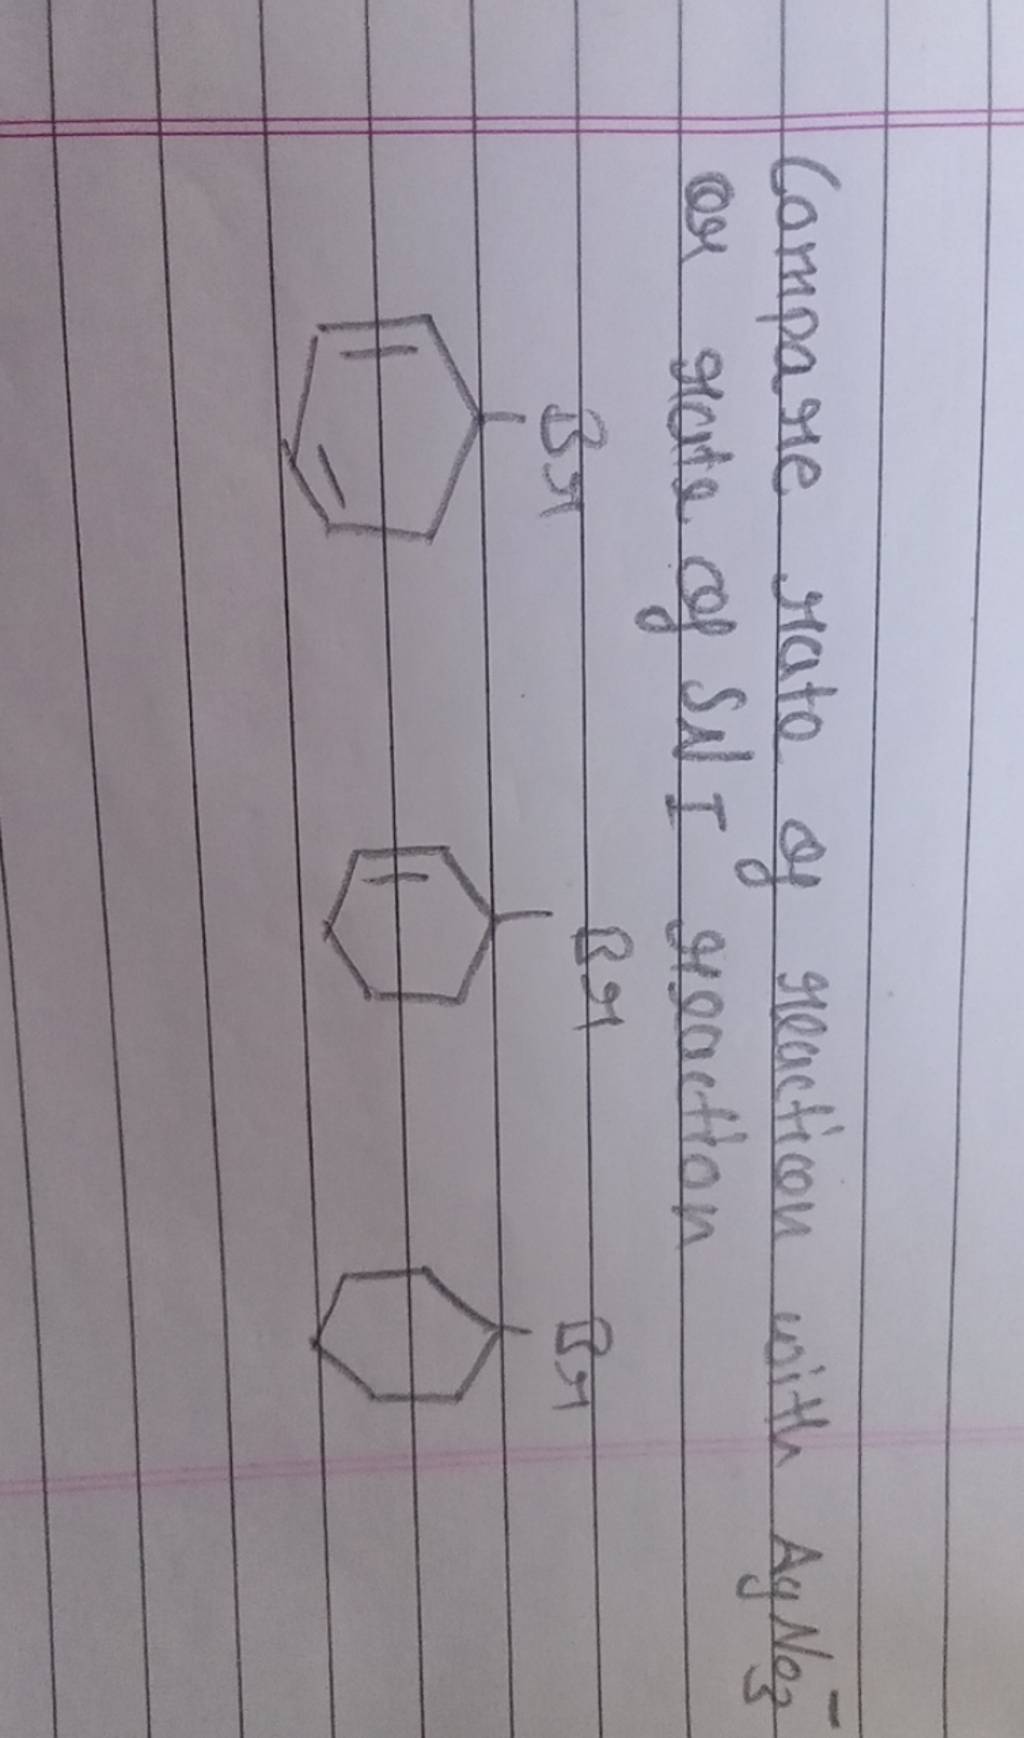 Compare rate of reaction with AgNO3⁻
or rate of SN1 reaction
Br Br Br